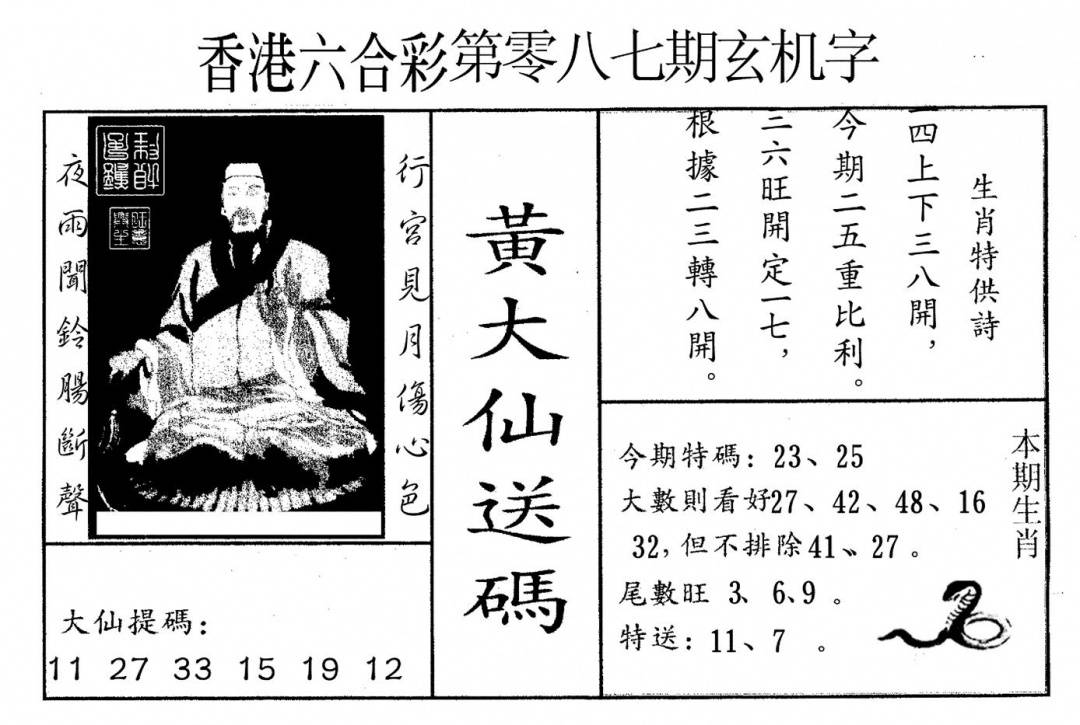 香港六合彩第零八七期玄机字
行宮見月傷心色
夜雨聞鈴腸斷聲
大仙提碼：
11 27 33 15 19 12
黃大仙送碼
生肖特供詩
一四上下三八開，
今期二五重比利。
三六旺開定一七，
根據二三轉八開。
本期生肖
今期特碼：23、25
大數則看好27、42、48、16
32，但不排除41、27。
尾數旺 3、6、9。
特送：11、7 。